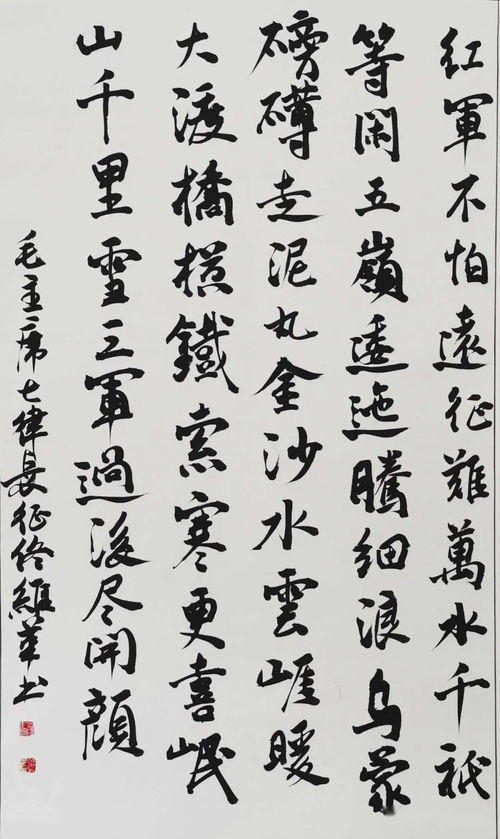 红軍不怕遠征難萬水千祇
等閑五嶺逶迤騰細浪烏蒙
磅礴走泥丸金沙水雲崖暖
大渡橋横鐵索寒更喜岷
山千里雪三軍過後尽開顔
毛主席七律長征佟維華书